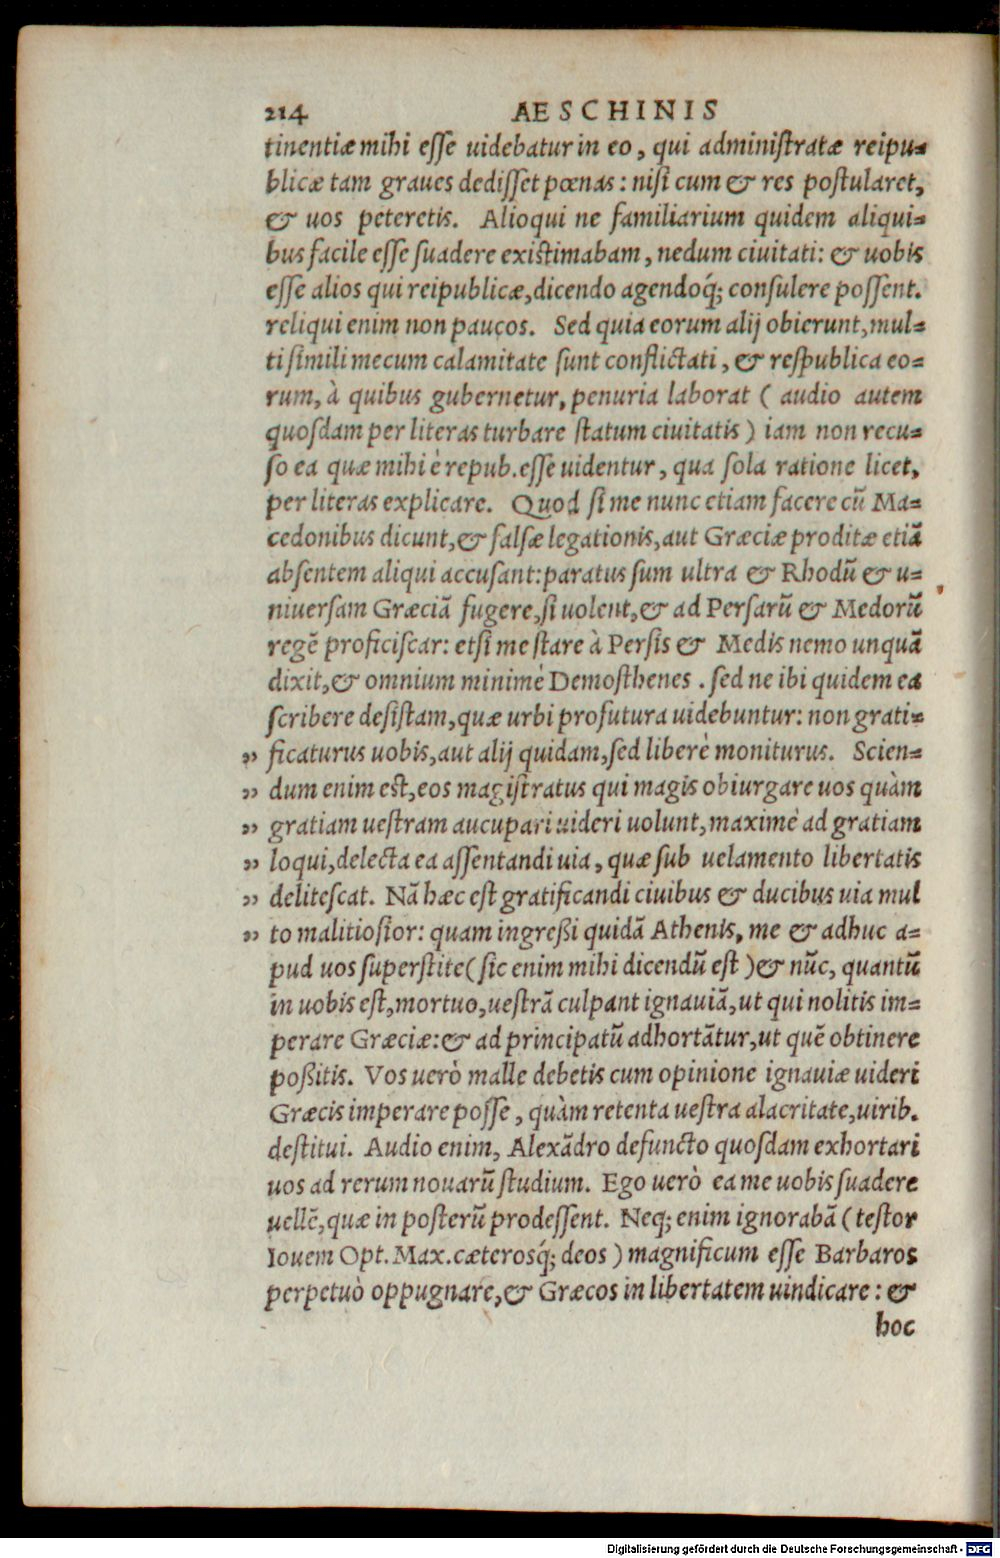 214 AESCHINIS
tinentiæ mihi esse uidebatur in eo, qui administratæ reipu-
blicæ tam graues dedisset pœnas: nisi cum & res postularet,
& uos peteretis. Alioqui ne familiarium quidem aliqui-
bus facile esse suadere existimabam, nedum ciuitati: & uobis
esse alios qui reipublicæ, dicendo agendoq́; consulere possent.
reliqui enim non paucos. Sed quia eorum alij obierunt, mul-
ti simili mecum calamitate sunt conflictati, & respublica eo-
rum, à quibus gubernetur, penuria laborat ( audio autem
quosdam per literas turbare statum ciuitatis ) iam non recu-
so ea quæ mihi è repub. esse uidentur, qua sola ratione licet,
per literas explicare. Quod si me nunc etiam facere cũ Ma-
cedonibus dicunt, & falsæ legationis, aut Græciæ proditæ etiã
absentem aliqui accusant: paratus sum ultra & Rhodũ & u-
niuersam Græciã fugere, si uolent, & ad Persarũ & Medorũ
regẽ proficiscar: etsi me stare à Persis & Medis nemo unquã
dixit, & omnium minimè Demosthenes. sed ne ibi quidem ea
scribere desistam, quæ urbi profutura uidebuntur: non grati-
„ ficaturus uobis, aut alij quidam, sed liberè moniturus. Scien-
„ dum enim est, eos magistratus qui magis obiurgare uos quàm
„ gratiam uestram aucupari uideri uolunt, maximè ad gratiam
„ loqui, delecta ea assentandi uia, quæ sub uelamento libertatis
„ delitescat. Nã hæc est gratificandi ciuibus & ducibus uia mul
„ to malitiosior: quam ingreßi quidã Athenis, me & adhuc a-
pud uos superstite ( sic enim mihi dicendũ est ) & nũc, quantũ
in uobis est, mortuo, uestrã culpant ignauiã, ut qui nolitis im-
perare Græciæ: & ad principatũ adhortãtur, ut quẽ obtinere
poßitis. Vos uerò malle debetis cum opinione ignauiæ uideri
Græcis imperare posse, quàm retenta uestra alacritate, uirib.
destitui. Audio enim, Alexãdro defuncto quosdam exhortari
uos ad rerum nouarũ studium. Ego uerò ea me uobis suadere
uellẽ, quæ in posterũ prodessent. Neq; enim ignorabã ( testor
Iouem Opt. Max. cæterosq́; deos ) magnificum esse Barbaros
perpetuò oppugnare, & Græcos in libertatem uindicare: &
hoc
Digitalisierung gefördert durch die Deutsche Forschungsgemeinschaft - DFG